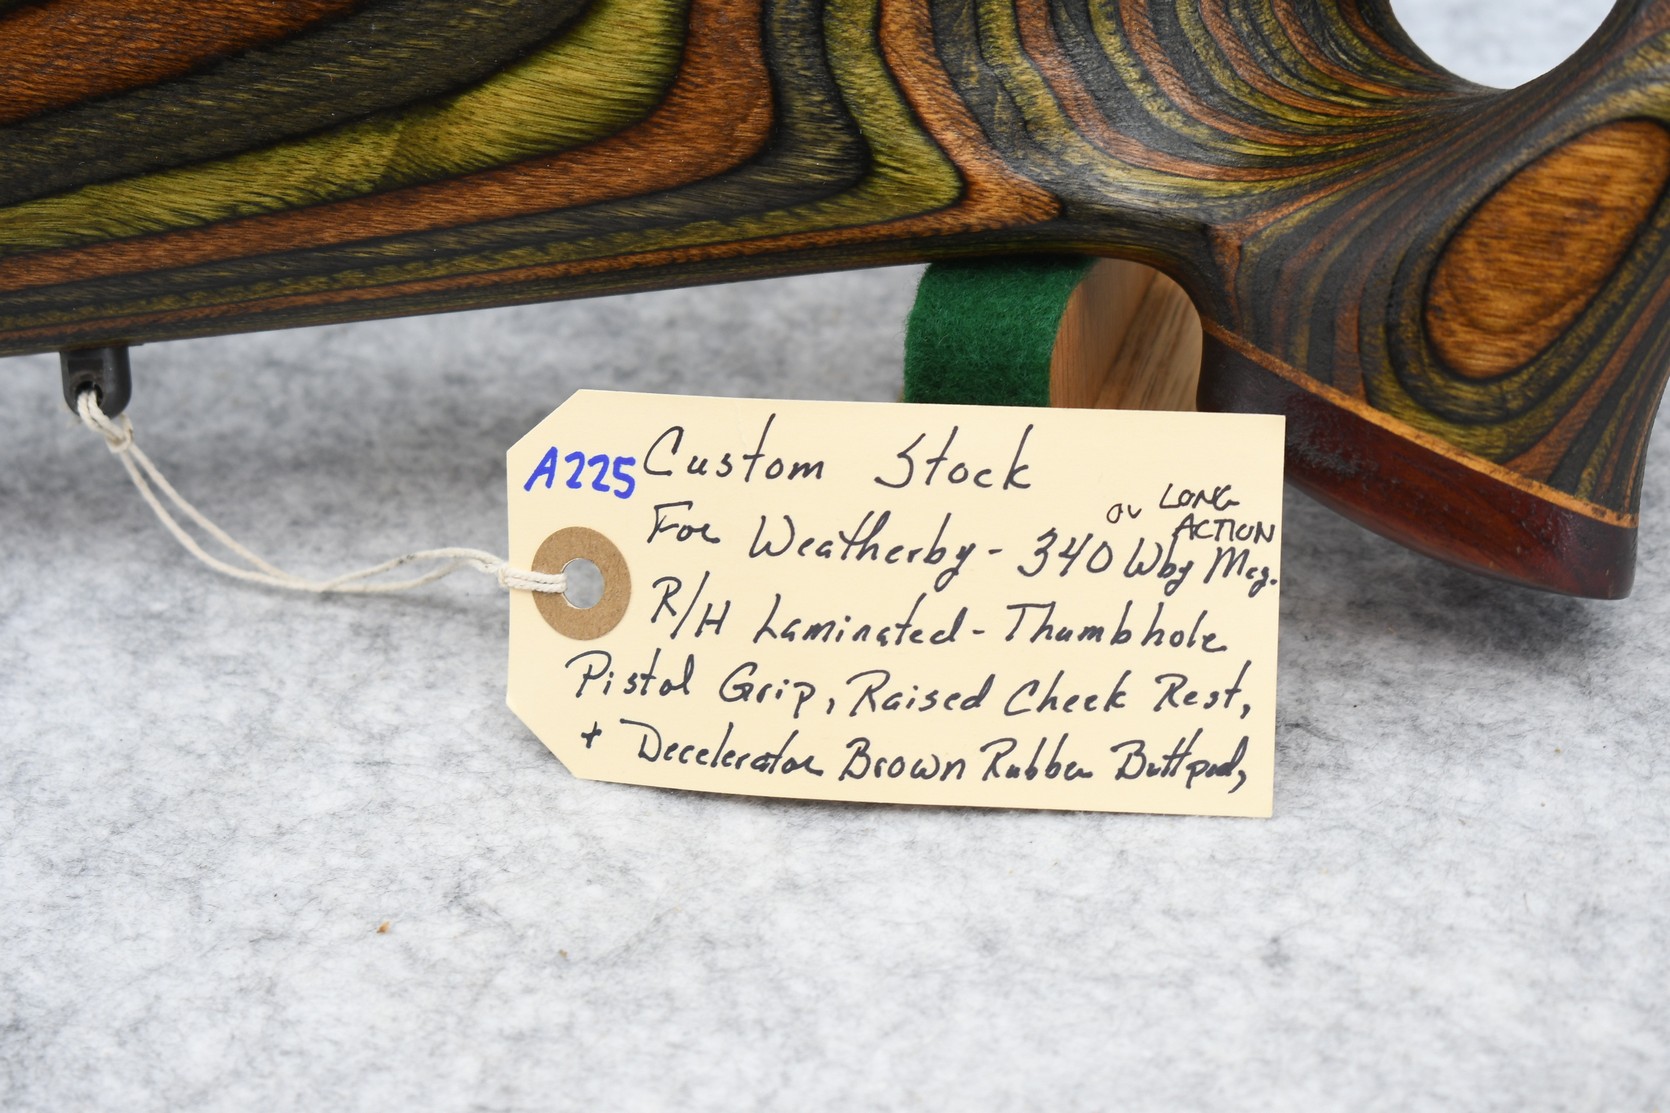 A225 Custom Stock
or LONG
ACTION
For Weatherby - 340 Wby Mag.
R/H Laminated - Thumbhole
Pistol Grip, Raised Cheek Rest,
+ Decelerator Brown Rubber Buttpad,